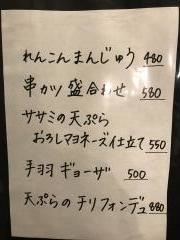 れんこんまんじゅう 480
串カツ盛合わせ 580
ササミの天ぷら
おろしマヨネーズ仕立て 550
手羽ギョーザ 500
天ぷらのチリフォンデュ 880